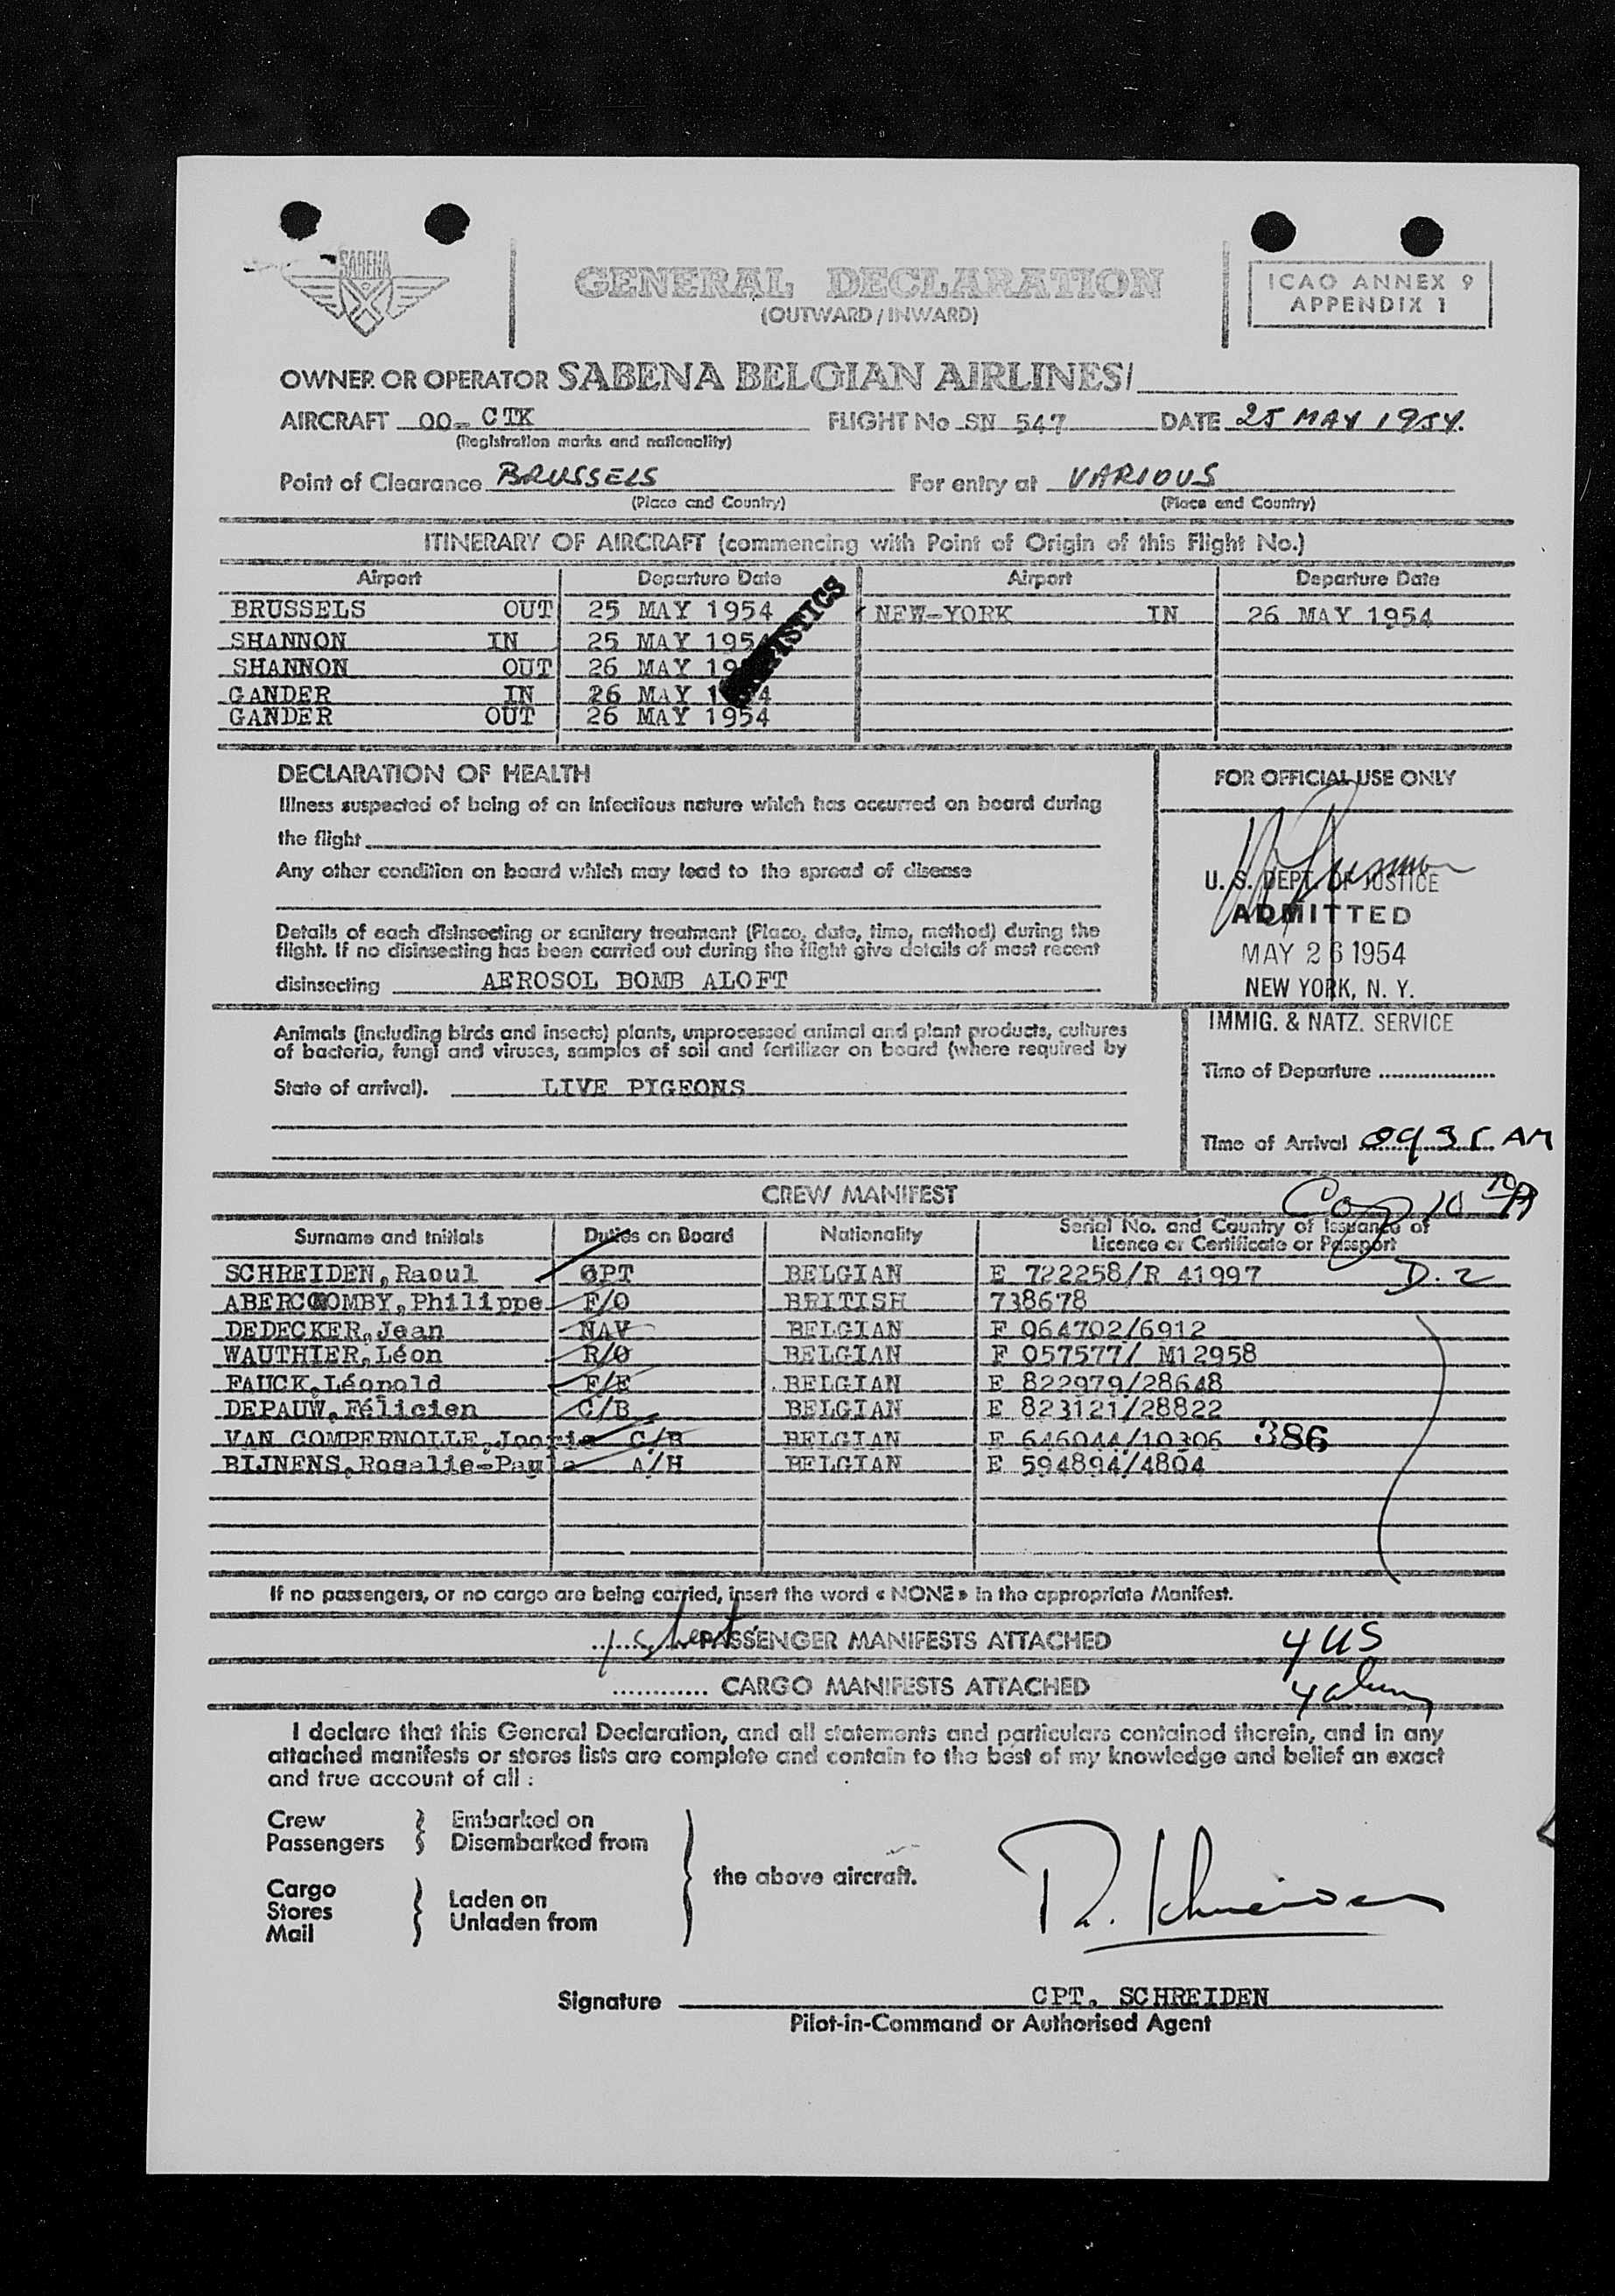 SABENA
GENERAL DECLARATION
(OUTWARD / INWARD)
ICAO ANNEX 9
APPENDIX 1
OWNER OR OPERATOR SABENA BELGIAN AIRLINES/
AIRCRAFT OO- CTK FLIGHT No SN 547 DATE 25 MAY 1954.
(Registration marks and nationality)
Point of Clearance BRUSSELS For entry at VARIOUS
(Place and Country) (Place and Country)
ITINERARY OF AIRCRAFT (commencing with Point of Origin of this Flight No.)
Airport Departure Date Airport Departure Date
BRUSSELS OUT 25 MAY 1954 NEW-YORK IN 26 MAY 1954
SHANNON IN 25 MAY 1954
SHANNON OUT 26 MAY 19
GANDER IN 26 MAY 1954
GANDER OUT 26 MAY 1954
DECLARATION OF HEALTH
Illness suspected of being of an infectious nature which has occurred on board during
the flight
Any other condition on board which may lead to the spread of disease
Details of each disinsecting or sanitary treatment (Place, date, time, method) during the
flight. If no disinsecting has been carried out during the flight give details of most recent
disinsecting AEROSOL BOMB ALOFT
FOR OFFICIAL USE ONLY
U. S. DEPT. OF JUSTICE
ADMITTED
MAY 26 1954
NEW YORK, N. Y.
IMMIG. & NATZ. SERVICE
Animals (including birds and insects) plants, unprocessed animal and plant products, cultures
of bacteria, fungi and viruses, samples of soil and fertilizer on board (where required by
State of arrival). LIVE PIGEONS
Time of Departure
Time of Arrival 0935 AM
CREW MANIFEST
Surname and Initials Duties on Board Nationality Serial No. and Country of Issuance of
Licence or Certificate or Passport
SCHREIDEN,Raoul CPT BELGIAN E 722258/R 41997 D.2
ABERCROMBY,Philippe F/O BRITISH 738678
DEDECKER,Jean NAV BELGIAN F 064702/6912
WAUTHIER,Léon R/O BELGIAN F 057577/ M12958
FAUCK,Léopold F/E BELGIAN E 822979/28648
DEPAUW,Félicien C/B BELGIAN E 823121/28822
VAN COMPERNOLLE,Jooris C/B BELGIAN E 646044/10306 386
BIJNENS,Rosalie-Paula A/H BELGIAN E 594894/4804
If no passengers, or no cargo are being carried, insert the word « NONE » in the appropriate Manifest.
1 sheet PASSENGER MANIFESTS ATTACHED 4 US
............ CARGO MANIFESTS ATTACHED 4 alien
I declare that this General Declaration, and all statements and particulars contained therein, and in any
attached manifests or stores lists are complete and contain to the best of my knowledge and belief an exact
and true account of all :
Crew Embarked on
Passengers Disembarked from
the above aircraft.
Cargo Laden on
Stores Unladen from
Mail
R. Schreiden
Signature CPT. SCHREIDEN
Pilot-in-Command or Authorised Agent